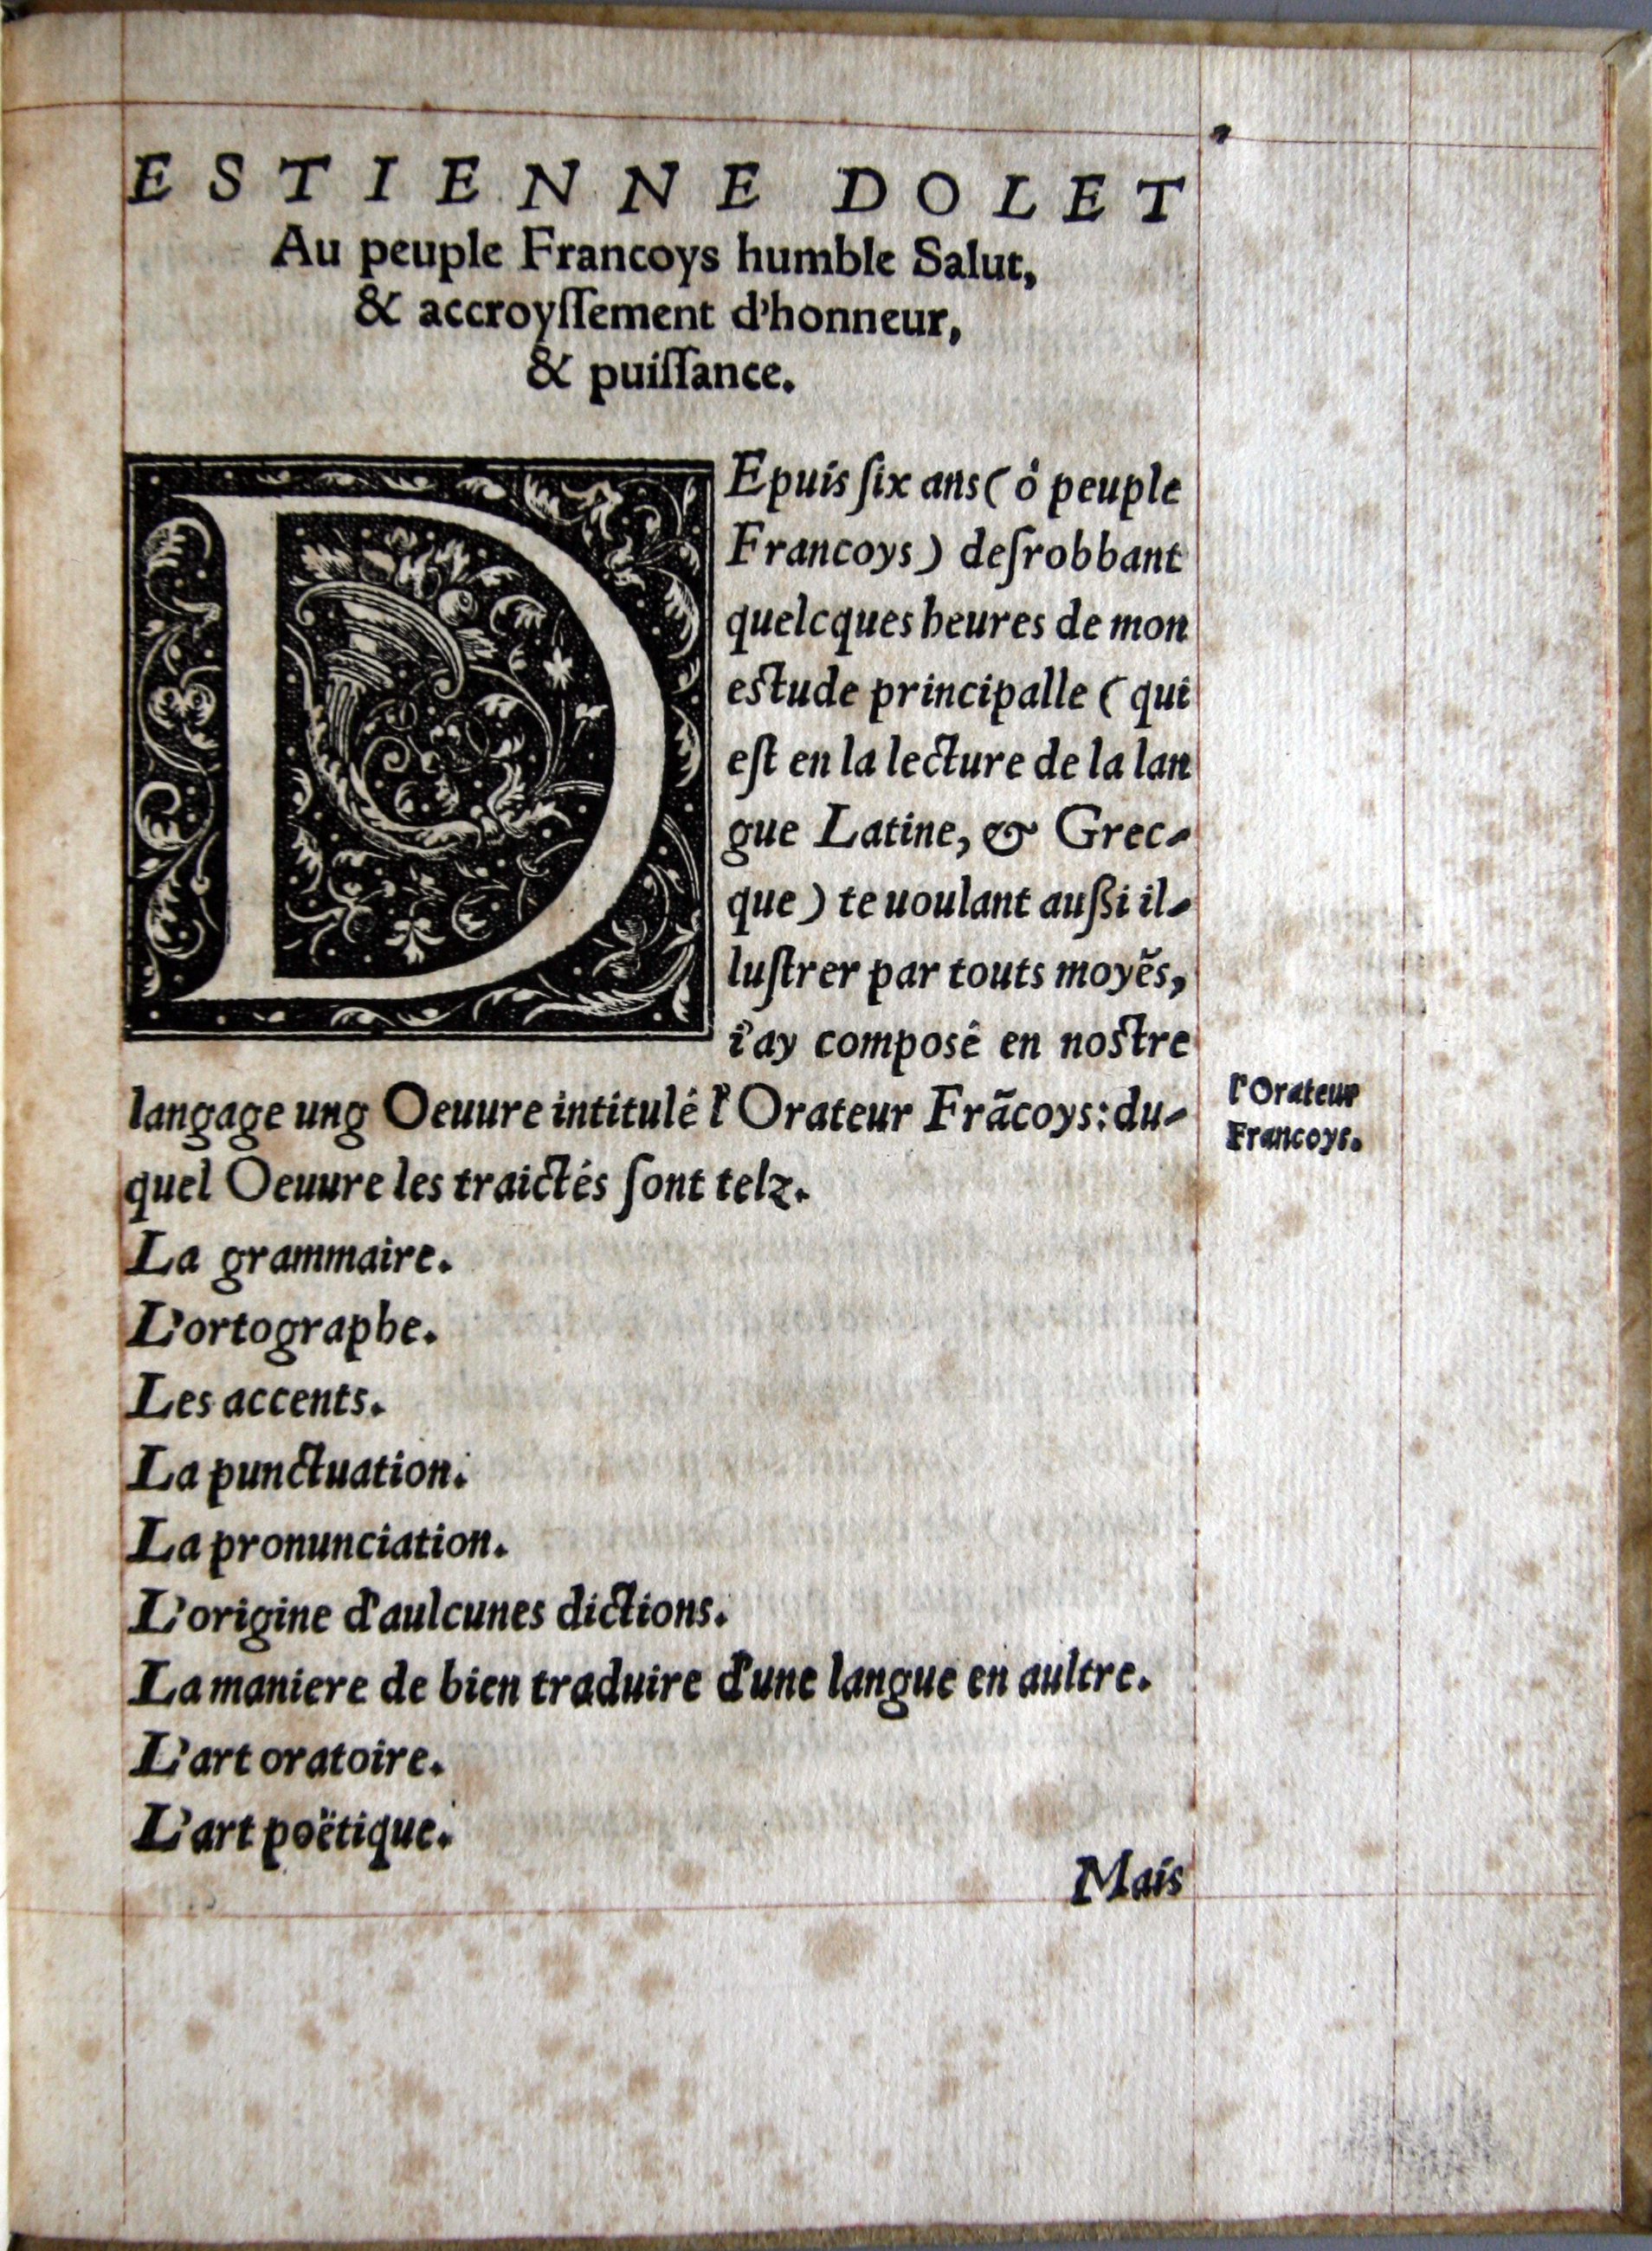 ESTIENNE DOLET
Au peuple Francoys humble Salut,
& accroyſſement d'honneur,
& puiſſance.
DEpuis ſix ans ( ó peuple
Francoys ) deſrobbant
quelcques heures de mon
eſtude principalle ( qui
eſt en la lecture de la lan
gue Latine, & Grec-
que ) te uoulant auſſi il-
luſtrer par touts moyẽs,
i'ay composé en noſtre
langage ung Oeuure intitulé l'Orateur Frãcoys: du-
quel Oeuure les traictés ſont telz.
l'Orateur
Francoys.
La grammaire.
L'ortographe.
Les accents.
La punctuation.
La pronunciation.
L'origine d'aulcunes dictions.
La maniere de bien traduire d'une langue en aultre.
L'art oratoire.
L'art poëtique.
Mais